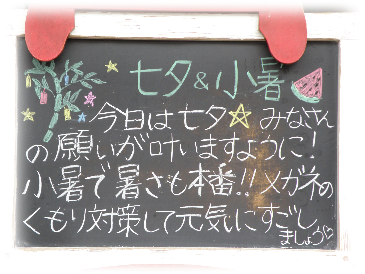 七夕&小暑
今日は七夕☆みなさん
の願いが叶いますように!
小暑で暑さも本番!!メガネの
くもり対策して元気にすごし
ましょう♡